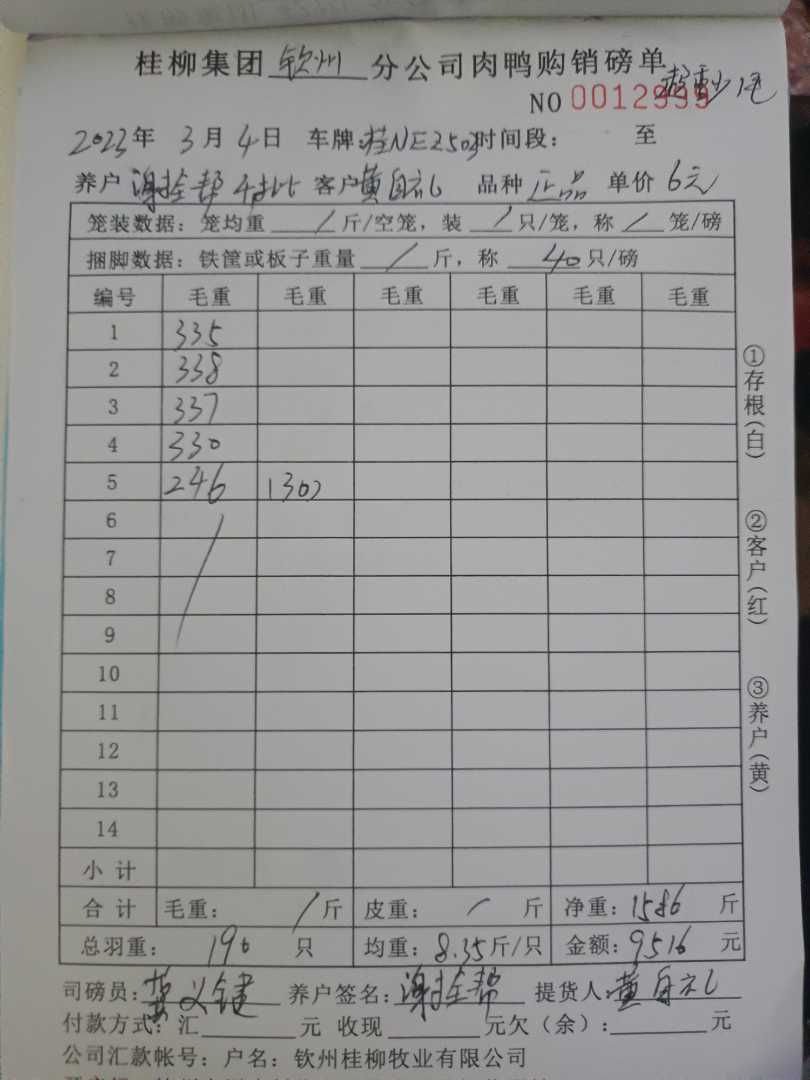 桂柳集团 钦州 分公司肉鸭购销磅单
NO 0012999
2023年 3月4日 车牌:桂NE2503 时间段: 至
养户 谢拴帮 客户 黄自礼 品种 正品 单价 6元
笼装数据:笼均重 / 斤/空笼,装 / 只/笼,称 / 笼/磅
捆脚数据:铁筐或板子重量 / 斤,称 40 只/磅
编号 毛重 毛重 毛重 毛重 毛重 毛重
1 335
2 338
3 337
4 330
5 246 (30)
6
7
8
9
10
11
12
13
14
小计
合计 毛重: / 斤 皮重: / 斤 净重: 1586 斤
总羽重: 190 只 均重: 8.35 斤/只 金额: 9516 元
司磅员: 黄义健 养户签名: 谢拴帮 提货人: 黄自礼
付款方式:汇 元 收现 元欠(余): 元
公司汇款帐号:户名:钦州桂柳牧业有限公司
①存根(白)
②客户(红)
③养户(黄)